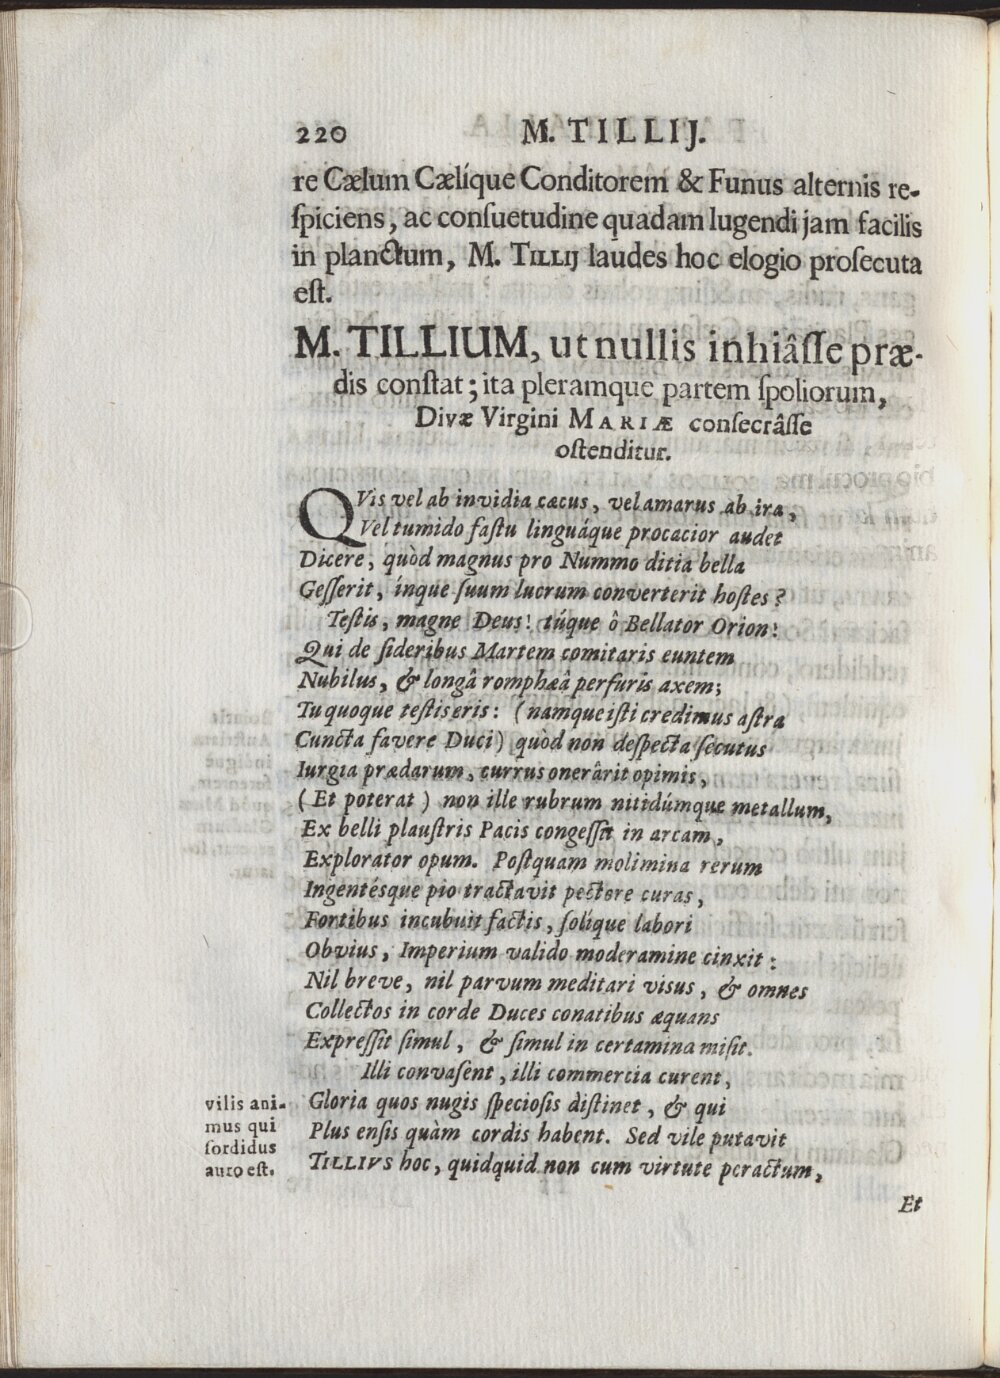 220 M. TILLIJ.
re Cælum Cælíque Conditorem & Funus alternis re-
ſpiciens, ac conſuetudine quadam lugendi jam facilis
in planctum, M. TILLIJ laudes hoc elogio proſecuta
eſt.
M. TILLIUM, ut nullis inhiâſſe præ-
dis conſtat; ita pleramque partem ſpoliorum,
Divæ Virgini MARIÆ conſecrâſſe
oſtenditur.
QVis vel ab invidia cæcus, vel amarus ab ira,
Vel tumido faſtu linguáque procacior audet
Dicere, quòd magnus pro Nummo ditia bella
Geſſerit, ínque ſuum lucrum converterit hoſtes?
Teſtis, magne Deus! túque ô Bellator Orion!
Qui de ſideribus Martem comitaris euntem
Nubilus, & longâ romphæâ perfuris axem;
Tu quoque teſtis eris: (namque iſti credimus aſtra
Cuncta favere Duci) quòd non deſpecta ſecutus
Iurgia prædarum, currus onerârit opimis,
(Et poterat) non ille rubrum nitidúmque metallum,
Ex belli plauſtris Pacis congeſſit in arcam,
Explorator opum. Poſtquam molimina rerum
Ingentésque pio tractavit pectore curas,
Fortibus incubuit factis, ſolíque labori
Obvius, Imperium valido moderamine cinxit:
Nil breve, nil parvum meditari viſus, & omnes
Collectos in corde Duces conatibus æquans
Expreſſit ſimul, & ſimul in certamina miſit.
Illi convaſent, illi commercia curent,
Gloria quos nugis ſpecioſis diſtinet, & qui
Plus enſis quàm cordis habent. Sed vile putavit
TILLIVS hoc, quidquid non cum virtute peractum,
vilis ani-
mus qui
ſordidus
auro eſt.
Et